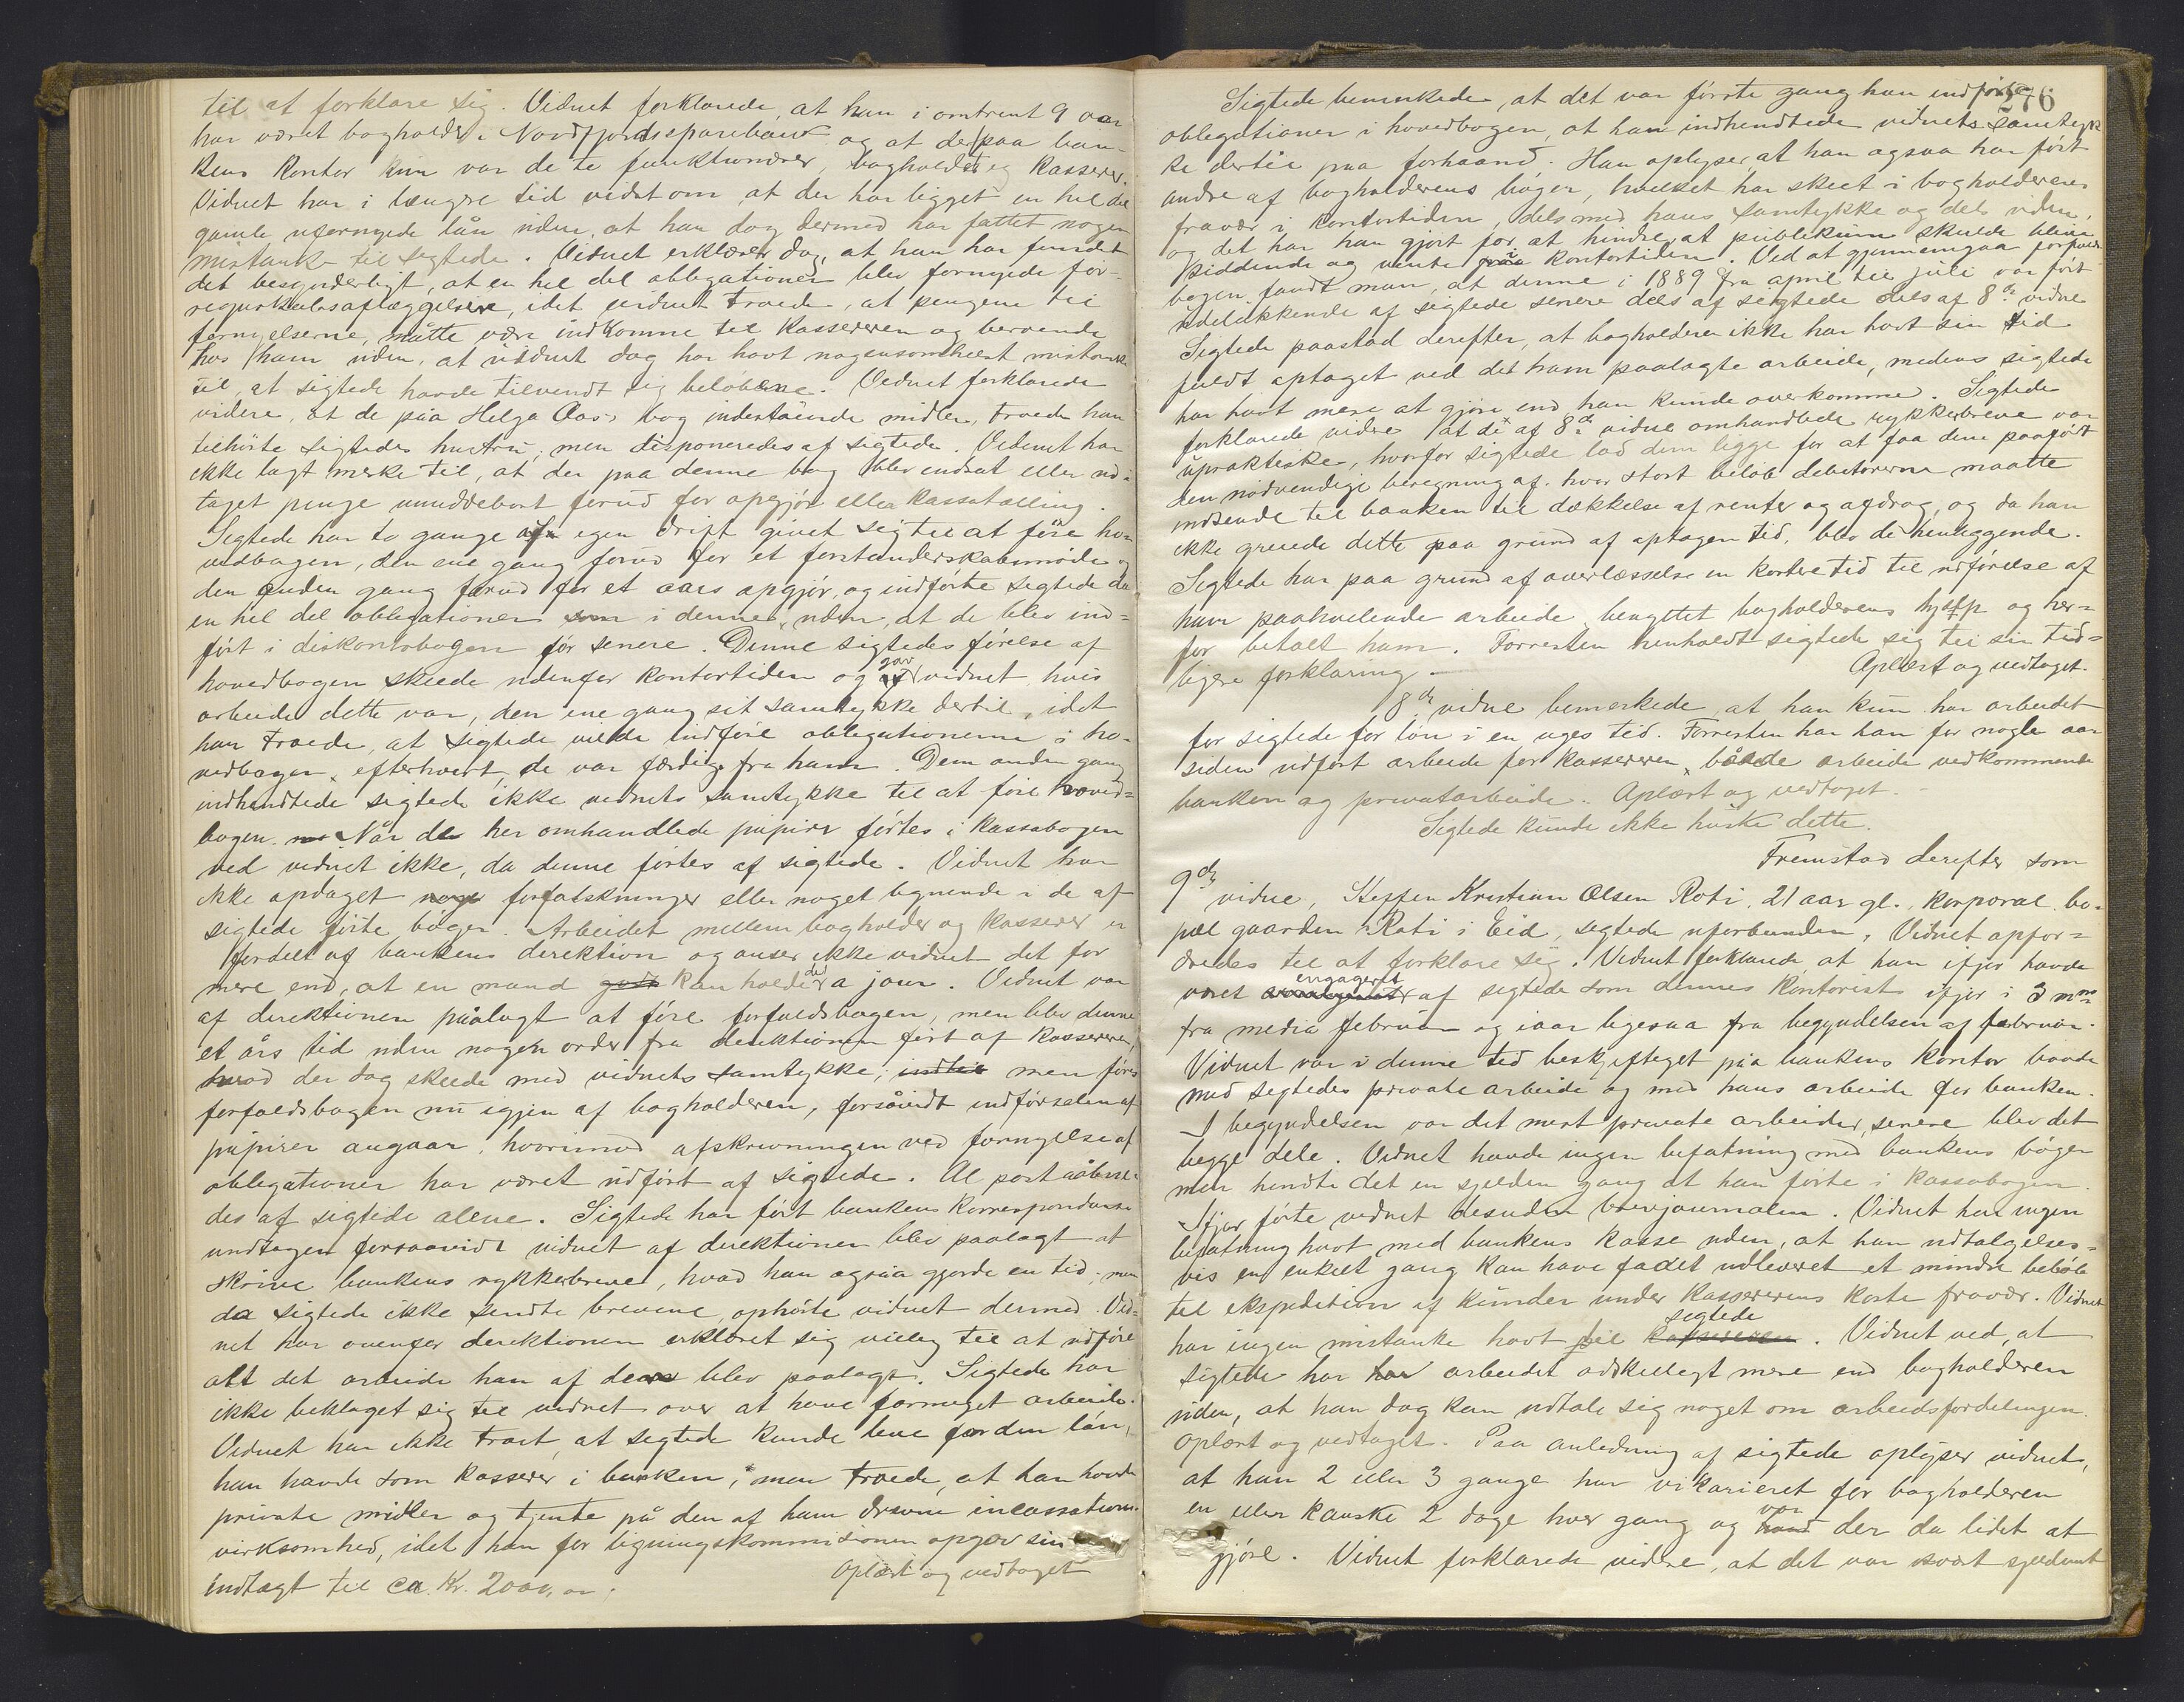 til at forklare sig. Vidnet forklarede, at han i omtrent 9 aar
har været bogholder i Nordfjords sparebank og at der paa ban-
kens kontor kun var de to funktionærer, bogholder og kasserer.
Vidnet har i længre tid vidst om at der har ligget en hel del
gamle ufornyede lån uden, at han dog dermed har fattet nogen
mistanke til sigtede. Vidnet erklærer dog, at han har fundet
det besynderligt, at en hel del obligationer blev fornyede før
regnskabsaflæggelsen, idet vidnet troede, at pengene til
fornyelserne, måtte være indkomne til kassereren og beroende
hos ham uden, at vidnet dog har havt nogensomhelst mistanke
til, at sigtede havde tilvendt sig beløbene. Vidnet forklarede
videre, at de på Helga Aas's bog indestående midler, troede han
tilhørte sigtedes hustru, men disponeredes af sigtede. Vidnet har
ikke lagt merke til, at der paa denne bog blev indsat eller ud-
taget penge umiddelbart forud for opgjør eller kassatælling.
Sigtede har to gange af egen drift givet sig til at føre ho-
vedbogen, den ene gang forud for et forstanderskabsmøde og
den anden gang forud for et aars opgjør, og indførte sigtede da
en hel del obligationer som i denne, uden, at de blev ind-
ført i diskontobogen før senere. Denne sigtedes førelse af
hovedbogen skeede udenfor kontortiden og gav vidnet, hvis
arbeide dette var, den ene gang sit samtykke dertil, idet
han troede, at sigtede vilde indføre obligationerne i ho-
vedbogen, efterhvert, de var færdige fra ham. Den anden gang
indhendtede sigtede ikke vidnets samtykke til at føre hoved-
bogen. Når de her omhandlede papirer førtes i kassabogen
ved vidnet ikke, da denne førtes af sigtede. Vidnet har
ikke opdaget noge forfalskninger eller noget lignende i de af
sigtede førte bøger. Arbeidet mellem bogholder og kasserer er
fordelt af bankens direktion og anser ikke vidnet det for
mere end, at en mand godt kan holde det a jour. Vidnet var
af direktionen pålagt at føre forfaldsbogen, men blev denne
et års tid uden nogen ordre fra direktionen ført af kassereren,
hvad der dog skeede med vidnets samtykke, indtil men føres
forfaldsbogen nu igjen af bogholderen, forsåvidt indførselen af
papirer angaar, hvorimod afskrivningen ved fornyelse af
obligationer har været udført af sigtede. Al post åbne-
des af sigtede alene. Sigtede har ført bankens korrespondanse
undtagen forsaavidt vidnet af direktionen blev paalagt at
skrive bankens rykkerbreve, hvad han også gjorde en tid, men
da sigtede ikke sendte brevene, ophørte vidnet dermed. Vid-
net har ovenfor direktionen erklæret sig villig til at udføre
alt det arbeide han af denne blev paalagt. Sigtede har
ikke beklaget sig til vidnet over at have formeget arbeide.
Vidnet har ikke troet, at sigtede kunde leve for den løn,
han havde som kasserer i banken, men troede, at han havde
private midler og tjente på den af ham drevne incassations-
virksomhed, idet han for ligningskommisionen opgav sin
indtægt til ca. Kr. 2000,oo. Oplæst og vedtaget
276
Sigtede bemerkede, at det var første gang han indførte
obligationer i hovedbogen, at han indhendtede vidnets samtyk-
ke dertil paa forhaand. Han oplyser, at han ogsaa har ført
andre af bogholderens bøger, hvilket har skeet i bogholderens
fravær i kontortiden, dels med hans samtykke og dels uden,
og det har han gjort for at hindre, at publikum skulde blive
siddende og vente kontortiden. Ved at gjennemgaa forfalds-
bogen fandt man, at denne i 1889 fra april til juli var ført
udelukkende af sigtede senere dels af sigtede dels af 8de vidne.
Sigtede paastod derefter, at bogholderen ikke har havt sin tid
fuldt optaget ved det ham paalagte arbeide, medens sigtede
har havt mere at gjøre end han kunde overkomme. Sigtede
forklarede videre, at de af 8de vidne omhandlede rykkerbreve var
upraktiske, hvorfor sigtede lod dem ligge for at faa dem paaført
den nødvendige beregning af, hvor stort beløb debitorerne maatte
indsende til banken til dækkelse af renter og afdrag, og da han
ikke greiede dette paa grund af optagen tid, blev de henliggende.
Sigtede har paa grund af overlæsselse en kortere tid til udførelse af
ham paahvilende arbeide benyttet bogholderens hjælp og her-
for betalt ham. Forresten henholdt sigtede sig til sin tid-
ligere forklaring.— Oplæst og vedtaget.
8de vidne bemerkede, at han kun har arbeidet
for sigtede for løn i en uges tid. Forresten har han for nogle aar
siden udført arbeide for kassereren, både arbeide vedkommende
banken og privatarbeide. Oplæst og vedtaget.
Sigtede kunde ikke huske dette.
Fremstod derefter som
9de vidne, Steffen Kristian Olsen Roti, 21 aar gl., korporal, bo-
pæl gaarden Roti i Eid, sigtede uforbunden. Vidnet opfor-
dredes til at forklare sig. Vidnet forklarede, at han ifjor havde
været engageret af sigtede som dennes kontorist ifjor i 3 mdr
fra medio februar og iaar ligesaa fra begyndelsen af februar.
Vidnet var i denne tid beskjeftiget på bankens kontor baade
med sigtedes private arbeide og med hans arbeide for banken.
I begyndelsen var det mest private arbeider, senere blev det
begge dele. Vidnet havde ingen befatning med bankens bøger
men hendte det en sjelden gang at han førte i kassabogen.
Ifjor førte vidnet desuden brevjournalen. Vidnet har ingen
befatning havt med bankens kasse uden, at han undtagelses-
vis en enkelt gang kan have faaet udleveret et mindre beløb
til ekspedition af kunder under kassererens korte fravær. Vidnet
har ingen mistanke havt til sigtede. Vidnet ved, at
sigtede har har arbeidet adskilligt mere end bogholderen
uden, at han dog kan udtale sig noget om arbeidsfordelingen.
Oplæst og vedtaget. Paa anledning af sigtede oplyser vidnet,
at han 2 eller 3 gange har vikarieret for bogholderen
en eller kanske 2 dage hver gang og var der da lidet at
gjøre. Vidnet forklarede videre, at det var svært sjeldent